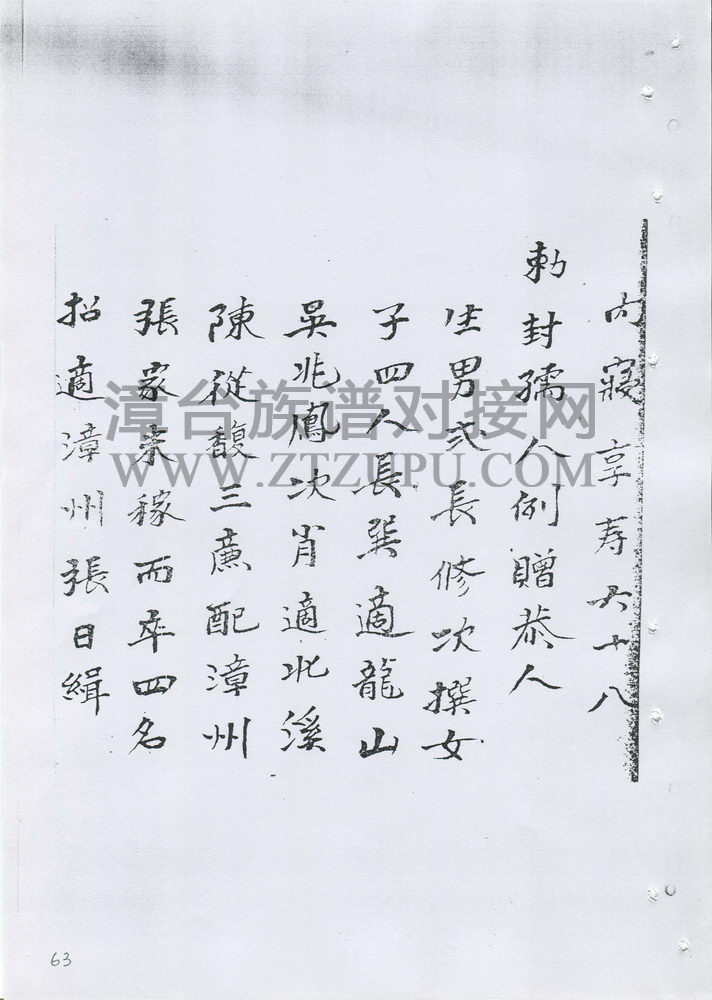 內寢享寿六十八
勅封孺人例贈恭人
生男弍長修次撰女
子四人長巽適龍山
吳兆鳳次肖適北溪
陳從馥三㢘配漳州
張家未稼而卒四名
招適漳州張日緝
漳台族谱对接网
WWW.ZTZUPU.COM
63